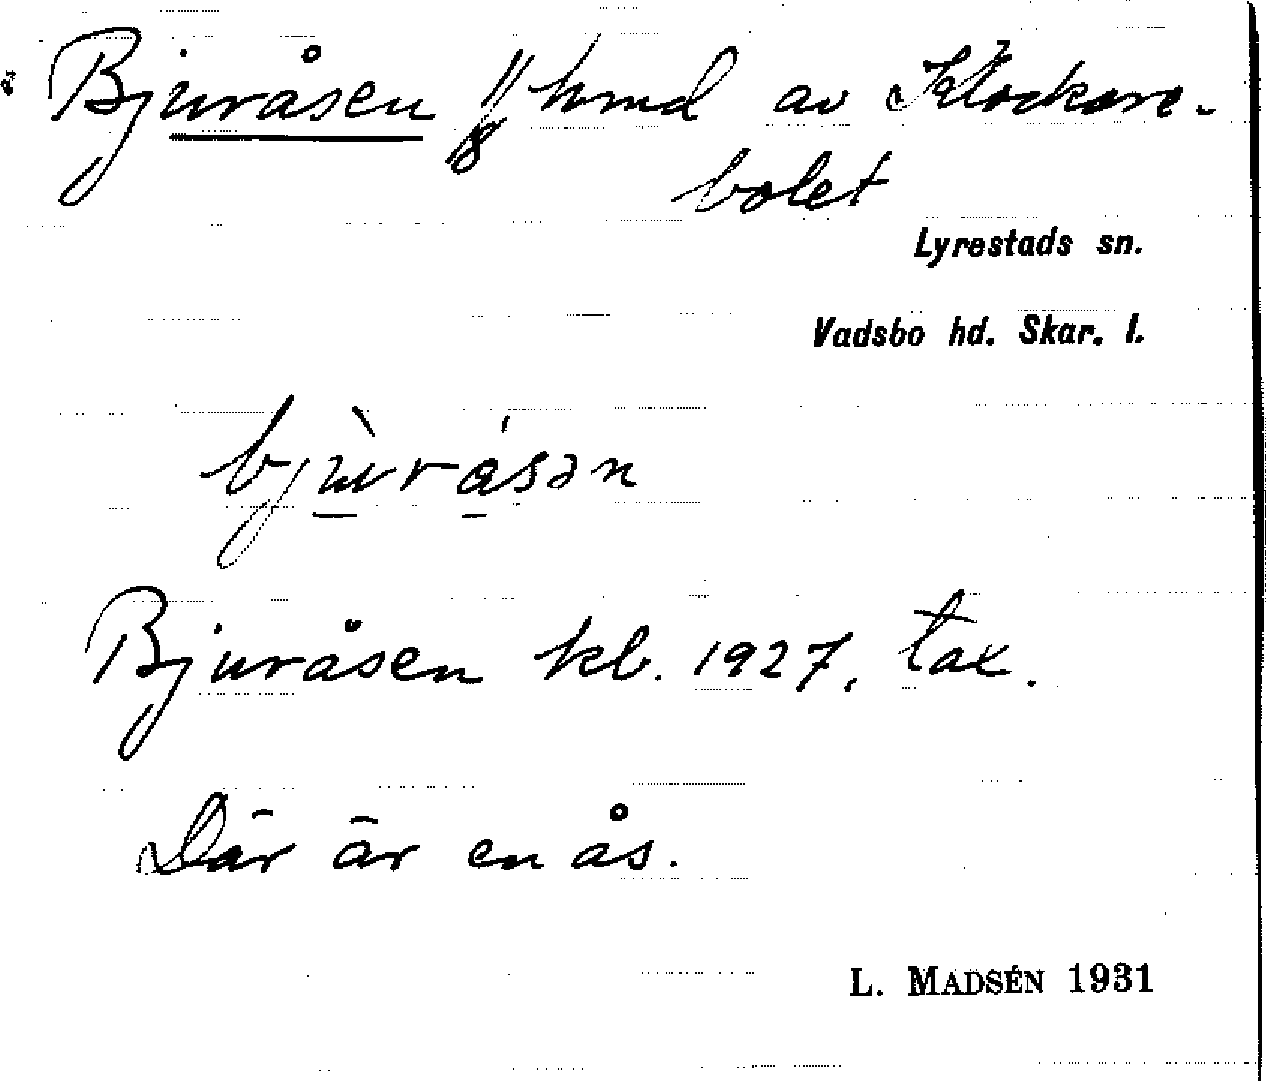 Bjuråsen 1/8 hmd av Klockare-
bolet
Lyrestads sn.
Vadsbo hd. Skar. l.
bjùvråsən
Bjuråsen kb. 1927, tax.
Där är en ås.
L. MADSÉN 1931